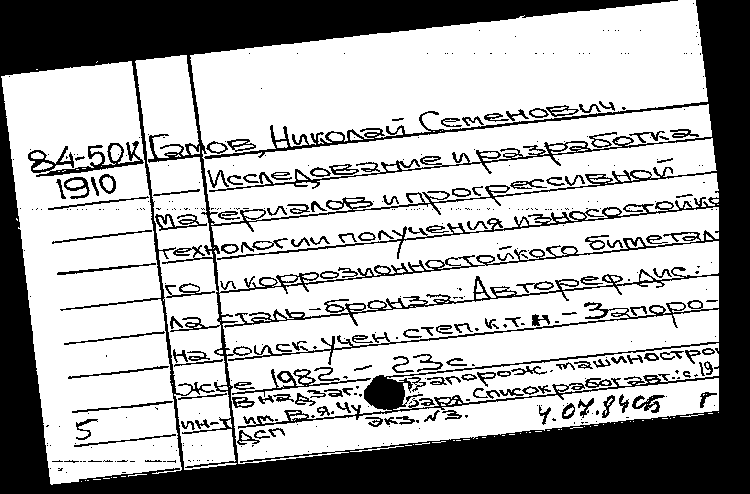 84-50К Гамов, Николай Семенович.
1910 Исследование и разработка
материалов и прогрессивной
технологии получения износостойко
го и коррозионностойкого биметал-
ла сталь-бронза: Автореф. дис.
на соиск. учен. степ. к.т.н. - Запоро-
жье 1982. - 23 с.
В надзаг.: Запорож. машиностро
5 ин-т им. В.Я. Чу баря. Список работ авт.: с. 19-
ДСП экз. №3. 4.07.84 СБ Г